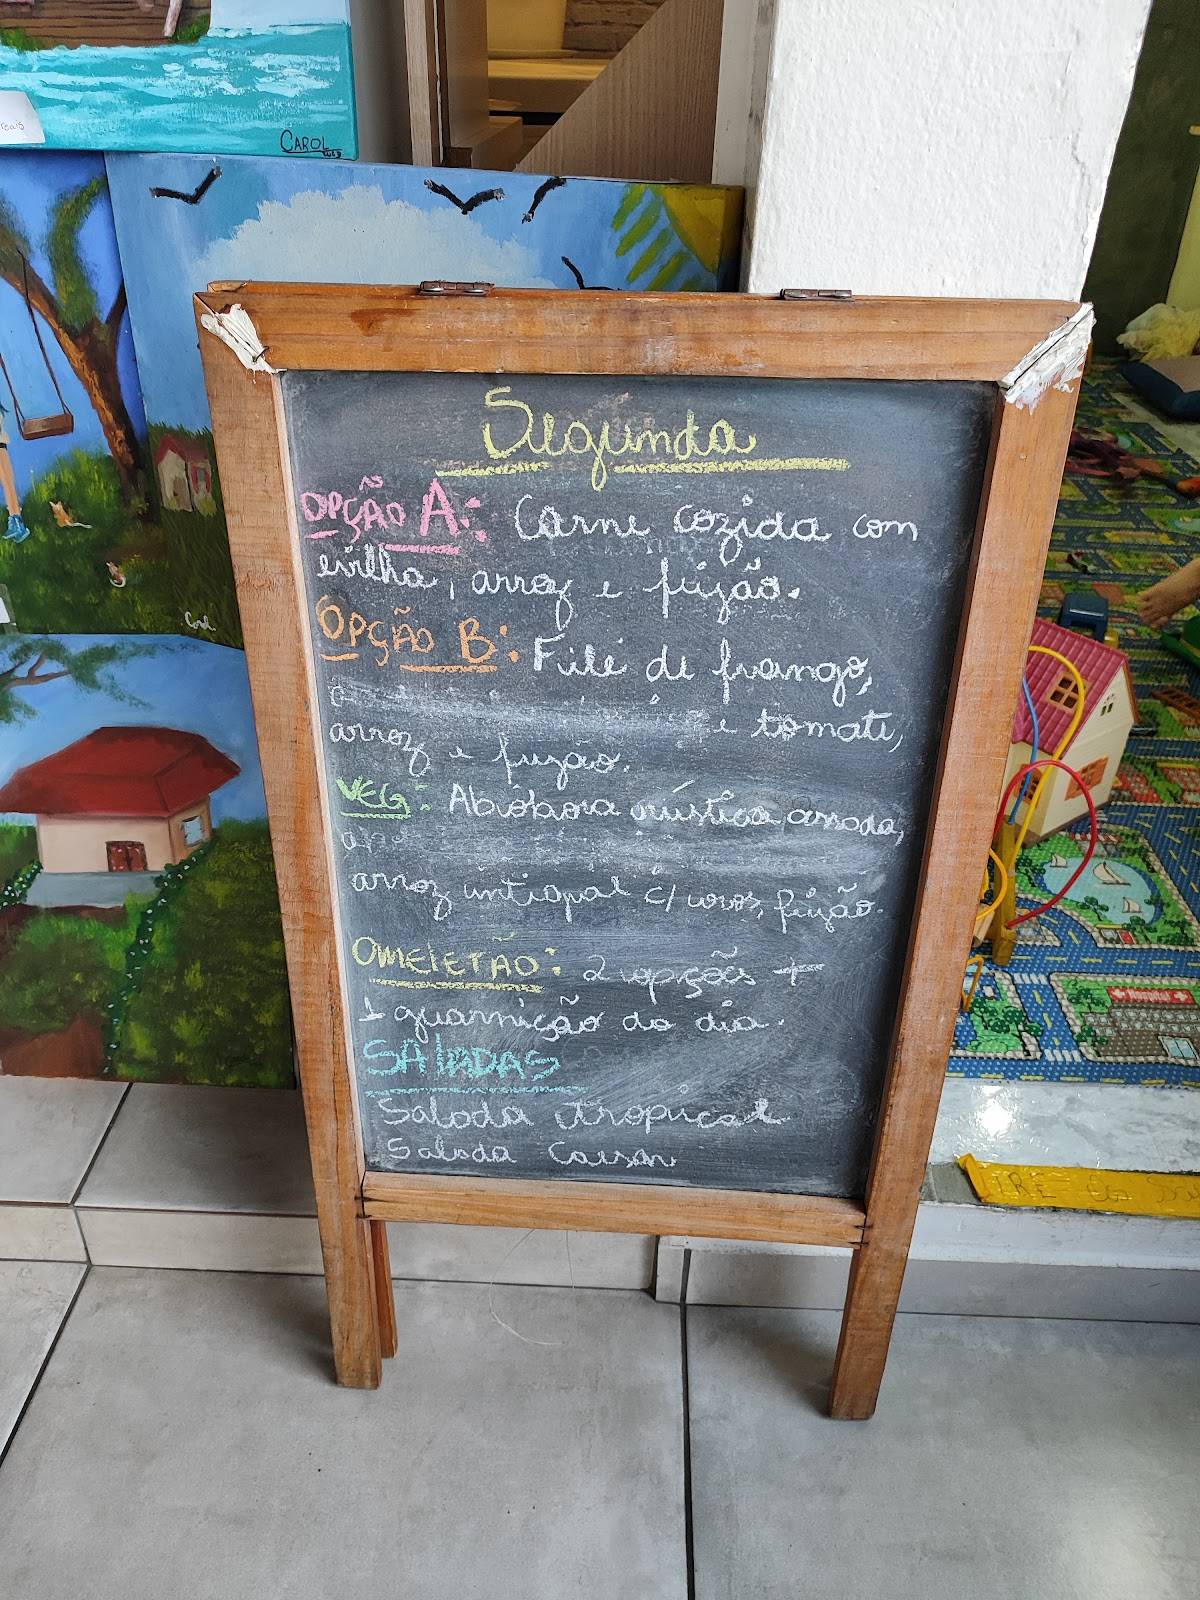 reais
CAROL
Segunda
OPÇÃO A: Carne cozida com
evilha, arroz e feijão.
OPÇÃO B: Filé de frango,
e tomate,
arroz e feijão.
VEG: Abóbora rústica assada,
arroz intiopal c/ feijão.
OMELETÃO: 2 opções +
1 guarnição do dia.
SALADAS
Salada tropical
Salada Caesar